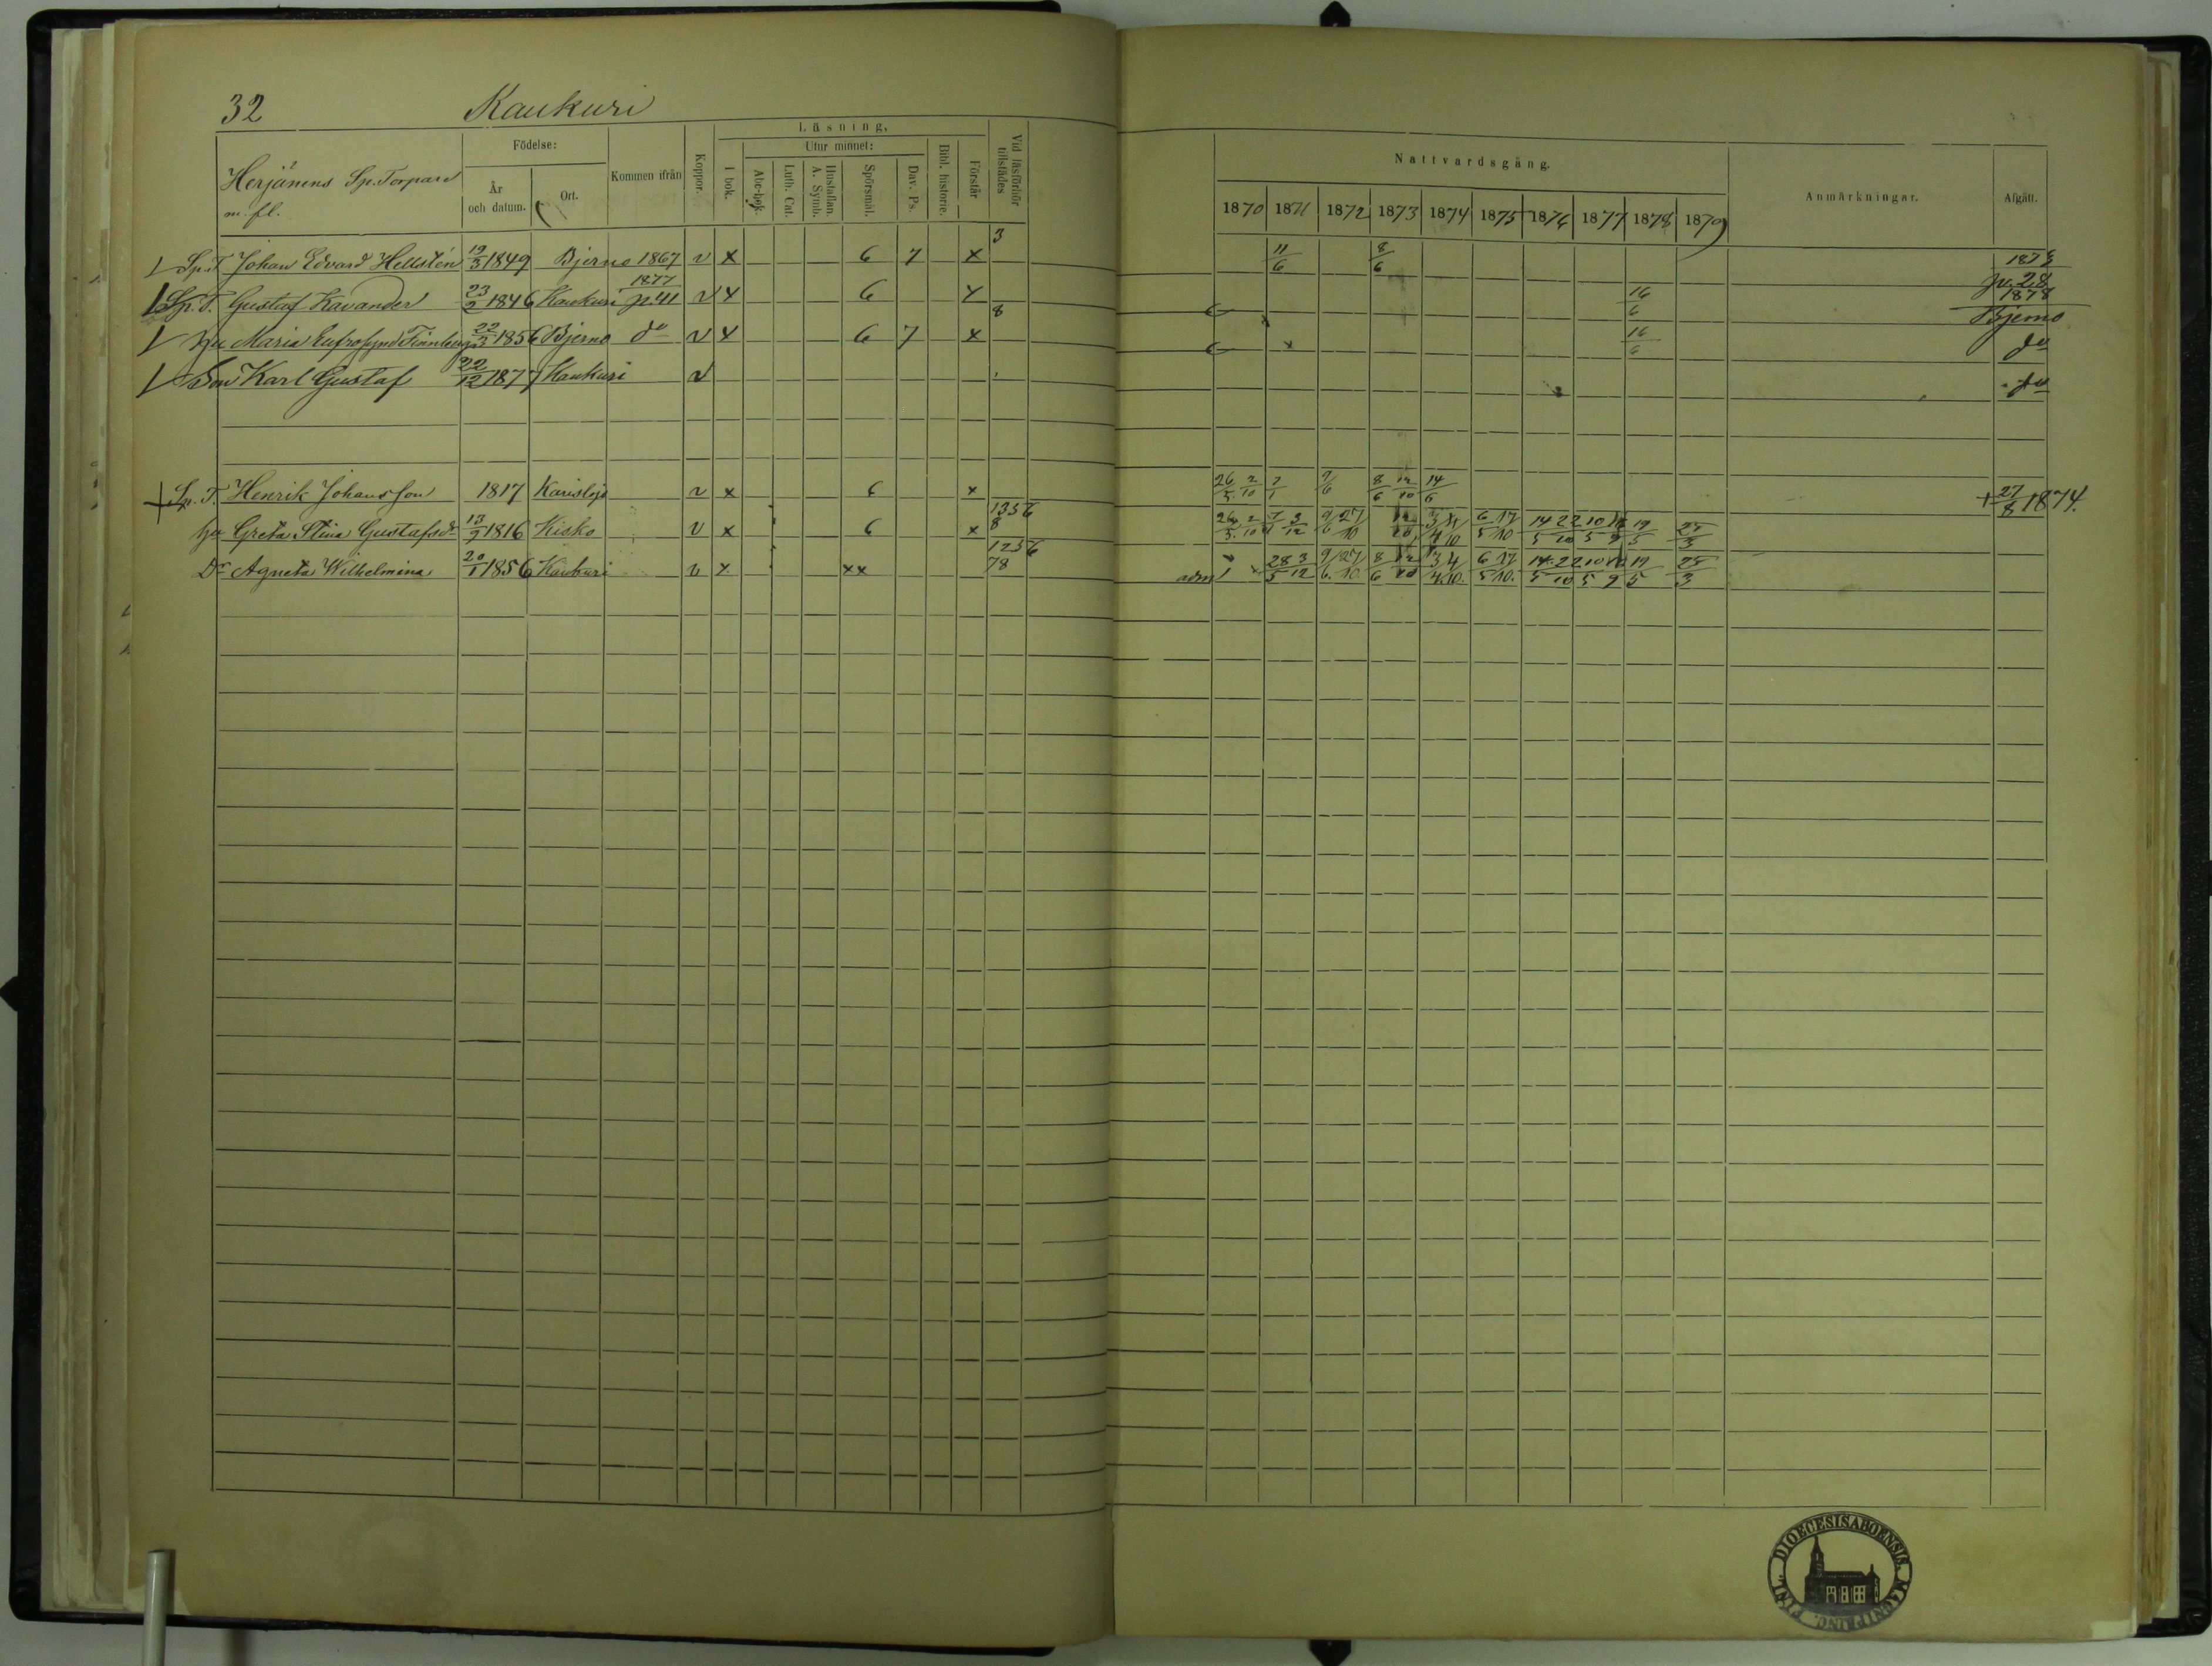 32 Kaukuri
Herjänens Sp. Torpare
m. fl.
Födelse:
År och datum.
Ort.
Kommen ifrån
Koppor.
Läsning,
I bok.
Utur minnet:
Abc-bok.
Luth. Cat.
Hustaflan. A. Symb.
Spörsmål.
Dav. Ps.
Bibl. historie.
Förstår
Vid läsförhör tillstädes
Nattvardsgång.
1870 1871 1872 1873 1874 1875 1876 1877 1878 1879
Anmärkningar.
Afgått.
Sp. T. Johan Edvard Hellstén 19/3 1849 Bjerno 1867 v x 6 7 x 3 11/6 8/6 1878 p. 28
Sp. T. Gustaf Kavander 23/2 1846 Kaukuri 1877 p 41 v x 6 x 8 16/6 1878 Bjerno
Hu Maria Eufrosyne 22/2 1856 Bjerno do v x 6 7 x 16/6 do
Son Karl Gustaf 22/12 1877 Kaukuri v do
+ Sp. T. Henrik Johansson 1817 Karislojo v x 6 x 26/5 2/10 7/1 9/6 8/6 12/10 14/6 + 27/8 1874.
Hu Greta Stina Gustafsdr 13/9 1816 Kisko v x 6 x 1356 8 26/5 2/10 3/12 9/6 27/10 12/10 6/5 17/10 14/5 22/10 10/5 19/5 25/3
Dr Agneta Wilhelmina 20/1 1856 Kaukuri v x xx 1256 78 adm 28/5 3/12 9/6 27/10 8/6 12/10 3/4 4/10 6/5 17/10 14/5 22/10 10/5 19/5 25/3
DIOECESIS ABOENSIS